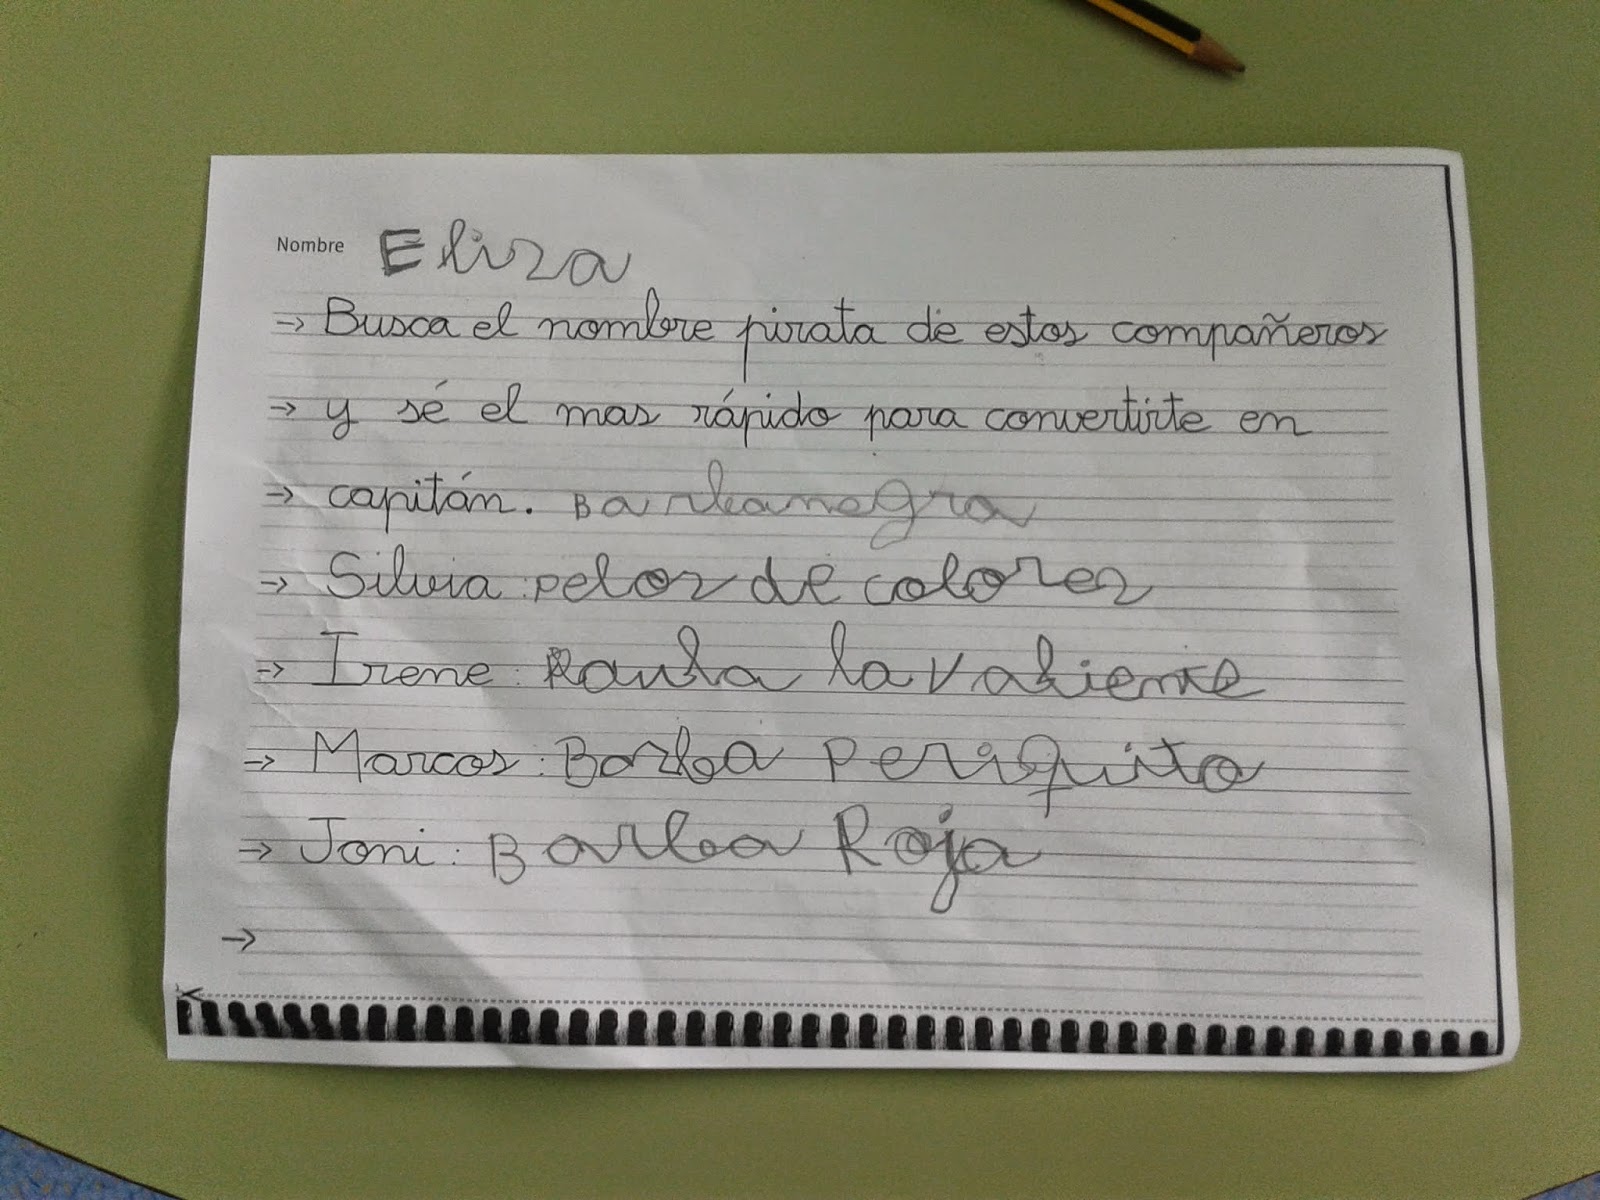 Nombre Elisa
→ Busca el nombre pirata de estos compañeros
→ y sé el mas rápido para convertirte en
→ capitán. Barbanegra
→ Silvia: pelos de colores
→ Irene: Paula la valiente
→ Marcos: Barba Periquito
→ Joni: Barba Roja
→